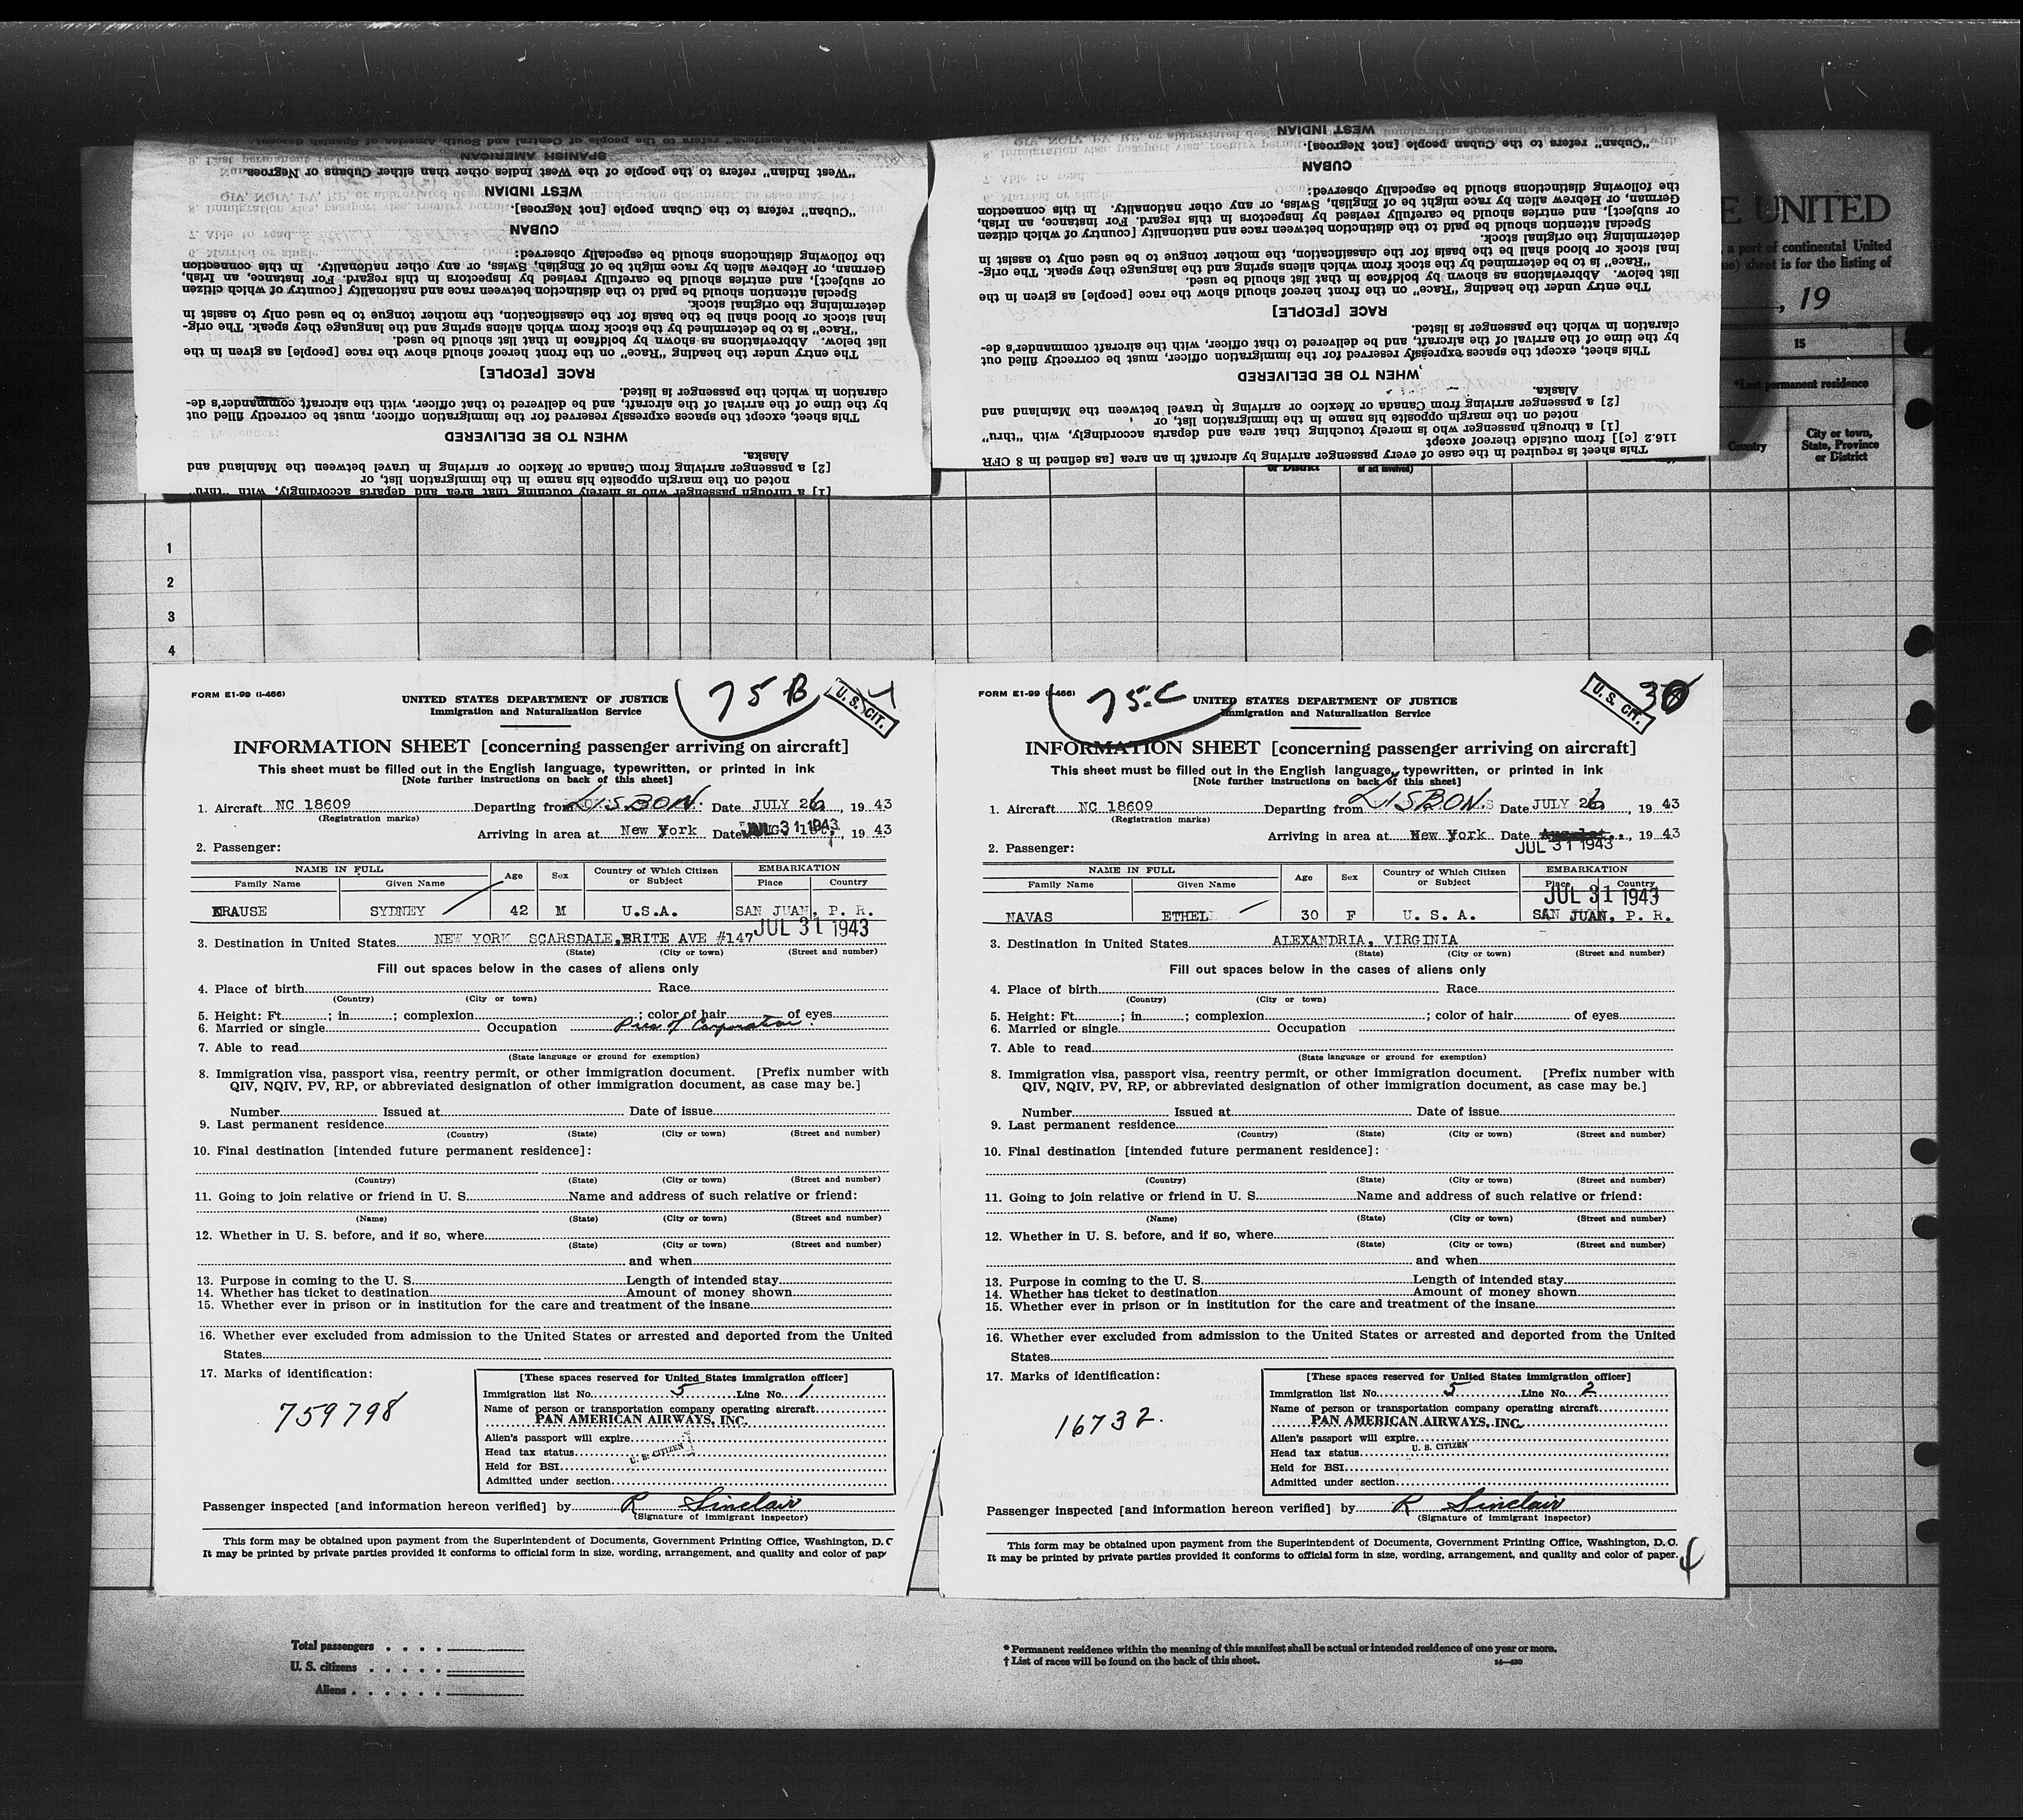 "West Indian" refers to the people of the West Indies other than either Cubans or Negroes.
WEST INDIAN
"Cuban" refers to the Cuban people [not Negroes].
CUBAN
the following distinctions should be especially observed:
German, or Hebrew alien by race might be of English, Swiss, or any other nationality. In this connection
or subject], and entries should be carefully revised by inspectors in this regard. For instance, an Irish,
Special attention should be paid to the distinction between race and nationality [country of which citizen
determining the original stock.
inal stock or blood shall be the basis for the classification, the mother tongue to be used only to assist in
"Race" is to be determined by the stock from which aliens spring and the language they speak. The orig-
list below. Abbreviations as shown by boldface in that list should be used.
The entry under the heading "Race" on the front hereof should show the race [people] as given in the
RACE [PEOPLE]
claration in which the passenger is listed.
by the time of the arrival of the aircraft, and be delivered to that officer, with the aircraft commander's de-
This sheet, except the spaces expressly reserved for the immigration officer, must be correctly filled out
WHEN TO BE DELIVERED
Alaska.
[2] a passenger arriving from Canada or Mexico or arriving in travel between the Mainland and
noted on the margin opposite his name in the immigration list, or
[1] a through passenger who is merely touching that area and departs accordingly, with "thru"
WEST INDIAN
"Cuban" refers to the Cuban people [not Negroes].
CUBAN
the following distinctions should be especially observed:
German, or Hebrew alien by race might be of English, Swiss, or any other nationality. In this connection
or subject], and entries should be carefully revised by inspectors in this regard. For instance, an Irish,
Special attention should be paid to the distinction between race and nationality [country of which citizen
determining the original stock.
inal stock or blood shall be the basis for the classification, the mother tongue to be used only to assist in
"Race" is to be determined by the stock from which aliens spring and the language they speak. The orig-
list below. Abbreviations as shown by boldface in that list should be used.
The entry under the heading "Race" on the front hereof should show the race [people] as given in the
RACE [PEOPLE]
claration in which the passenger is listed.
by the time of the arrival of the aircraft, and be delivered to that officer, with the aircraft commander's de-
This sheet, except the spaces expressly reserved for the immigration officer, must be correctly filled out
WHEN TO BE DELIVERED
Alaska.
[2] a passenger arriving from Canada or Mexico or arriving in travel between the Mainland and
noted on the margin opposite his name in the immigration list, or
[1] a through passenger who is merely touching that area and departs accordingly, with "thru"
116.2 [c]] from outside thereof except
This sheet is required in the case of every passenger arriving by aircraft in an area [as defined in 8 CFR
E UNITED
, a port of continental United
sheet is for the listing of
, 19
15
*Last permanent residence
Country
City or town, State, Province or District
or District
1
2
3
4
FORM E1-99 (I-466)
75 B
U. S. CIT.
UNITED STATES DEPARTMENT OF JUSTICE
Immigration and Naturalization Service
INFORMATION SHEET [concerning passenger arriving on aircraft]
This sheet must be filled out in the English language, typewritten, or printed in ink
[Note further instructions on back of this sheet]
1. Aircraft NC 18609 Departing from LISBON Date JULY 26, 19 43
(Registration marks)
Arriving in area at New York Date JUL 31 1943, 19 43
2. Passenger:
NAME IN FULL Age Sex Country of Which Citizen or Subject EMBARKATION
Family Name Given Name Place Country
KRAUSE SYDNEY 42 M U.S.A. SAN JUAN, P. R.
JUL 31 1943
3. Destination in United States NEW YORK SCARSDALE,BRITE AVE #147
(State) (City or town) (Street and number)
Fill out spaces below in the cases of aliens only
4. Place of birth Race
(Country) (City or town)
5. Height: Ft. ; in ; complexion ; color of hair of eyes
6. Married or single Occupation Pres of Corporation
7. Able to read
(State language or ground for exemption)
8. Immigration visa, passport visa, reentry permit, or other immigration document. [Prefix number with
QIV, NQIV, PV, RP, or abbreviated designation of other immigration document, as case may be.]
Number Issued at Date of issue
9. Last permanent residence
(Country) (State) (City or town) (Street and number)
10. Final destination [intended future permanent residence]:
(Country) (State) (City or town) (Street and number)
11. Going to join relative or friend in U. S. Name and address of such relative or friend:
(Name) (State) (City or town) (Street and number)
12. Whether in U. S. before, and if so, where
(State) (City or town) (Street and number)
and when
13. Purpose in coming to the U. S. Length of intended stay
14. Whether has ticket to destination Amount of money shown
15. Whether ever in prison or in institution for the care and treatment of the insane
16. Whether ever excluded from admission to the United States or arrested and deported from the United
States
17. Marks of identification:
759798
[These spaces reserved for United States immigration officer]
Immigration list No. 5 Line No. 1
Name of person or transportation company operating aircraft
PAN AMERICAN AIRWAYS, INC.
Alien's passport will expire
Head tax status U. S. CITIZEN
Held for BSI
Admitted under section
Passenger inspected [and information hereon verified] by R Sinclair
(Signature of immigrant inspector)
This form may be obtained upon payment from the Superintendent of Documents, Government Printing Office, Washington, D. C
It may be printed by private parties provided it conforms to official form in size, wording, arrangement, and quality and color of pap
FORM E1-99 (I-466)
75.C
U. S. CIT.
UNITED STATES DEPARTMENT OF JUSTICE
Immigration and Naturalization Service
INFORMATION SHEET [concerning passenger arriving on aircraft]
This sheet must be filled out in the English language, typewritten, or printed in ink
[Note further instructions on back of this sheet]
1. Aircraft NC 18609 Departing from LISBON Date JULY 26, 19 43
(Registration marks)
Arriving in area at New York Date 19 43
JUL 31 1943
2. Passenger:
NAME IN FULL Age Sex Country of Which Citizen or Subject EMBARKATION
Family Name Given Name Place Country
JUL 31 1943
NAVAS ETHEL 30 F U. S. A. SAN JUAN, P. R.
3. Destination in United States ALEXANDRIA, VIRGINIA
(State) (City or town) (Street and number)
Fill out spaces below in the cases of aliens only
4. Place of birth Race
(Country) (City or town)
5. Height: Ft. ; in ; complexion ; color of hair of eyes
6. Married or single Occupation
7. Able to read
(State language or ground for exemption)
8. Immigration visa, passport visa, reentry permit, or other immigration document. [Prefix number with
QIV, NQIV, PV, RP, or abbreviated designation of other immigration document, as case may be.]
Number Issued at Date of issue
9. Last permanent residence
(Country) (State) (City or town) (Street and number)
10. Final destination [intended future permanent residence]:
(Country) (State) (City or town) (Street and number)
11. Going to join relative or friend in U. S. Name and address of such relative or friend:
(Name) (State) (City or town) (Street and number)
12. Whether in U. S. before, and if so, where
(State) (City or town) (Street and number)
and when
13. Purpose in coming to the U. S. Length of intended stay
14. Whether has ticket to destination Amount of money shown
15. Whether ever in prison or in institution for the care and treatment of the insane
16. Whether ever excluded from admission to the United States or arrested and deported from the United
States
17. Marks of identification:
16732.
[These spaces reserved for United States immigration officer]
Immigration list No. 5 Line No. 2
Name of person or transportation company operating aircraft
PAN AMERICAN AIRWAYS, INC.
Alien's passport will expire
Head tax status U. S. CITIZEN
Held for BSI
Admitted under section
Passenger inspected [and information hereon verified] by R Sinclair
(Signature of immigrant inspector)
This form may be obtained upon payment from the Superintendent of Documents, Government Printing Office, Washington, D. C.
It may be printed by private parties provided it conforms to official form in size, wording, arrangement, and quality and color of paper.
Total passengers
U. S. citizens
Aliens
* Permanent residence within the meaning of this manifest shall be actual or intended residence of one year or more.
† List of races will be found on the back of this sheet.